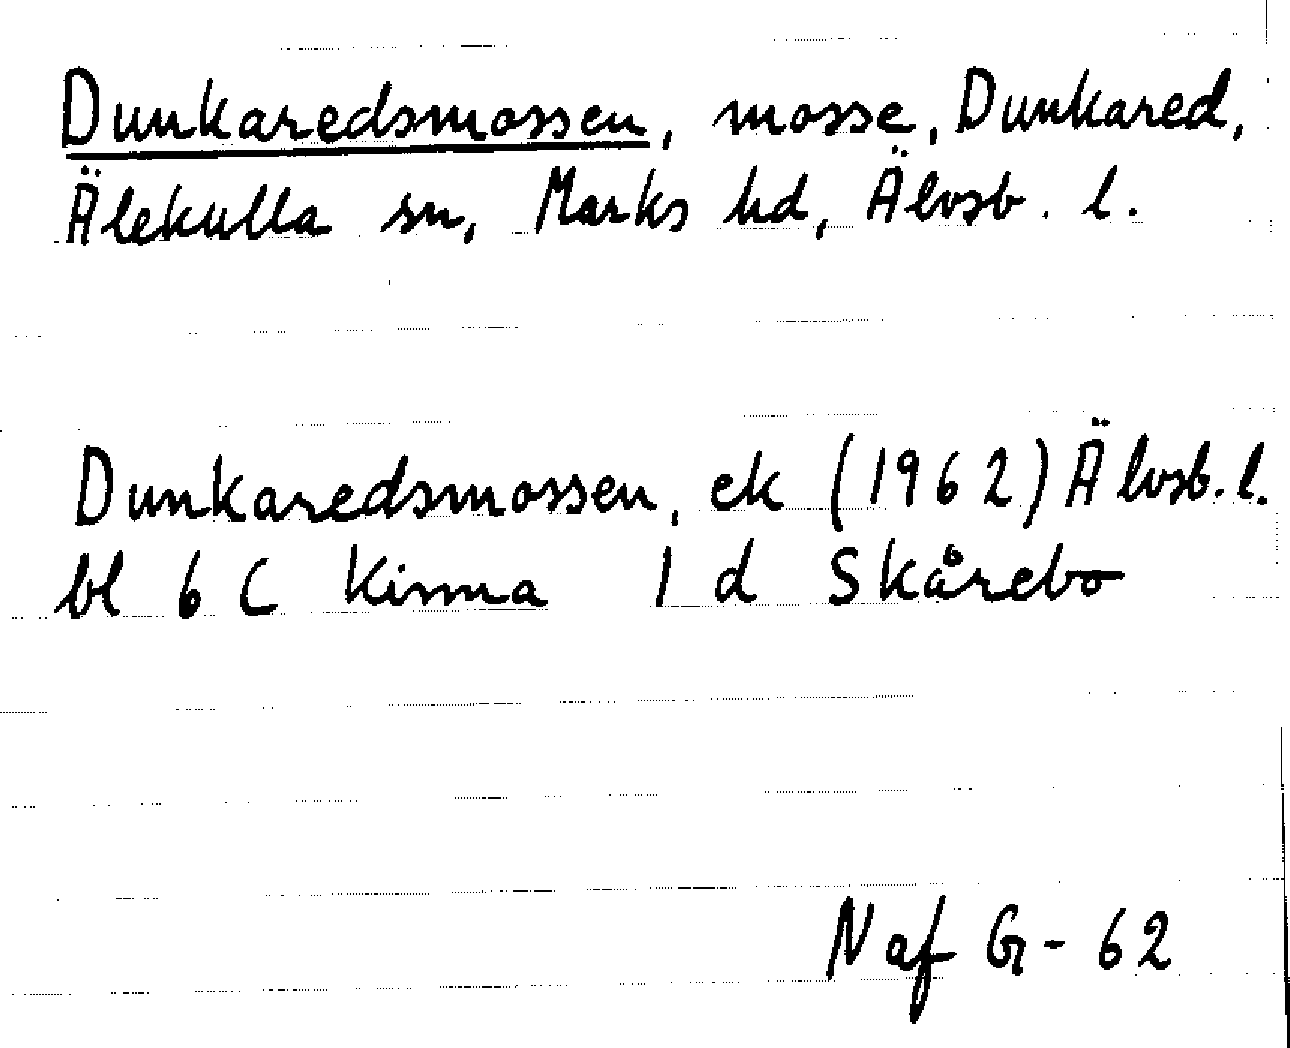 Dunkaredsmossen, mosse, Dunkared,
Älekulla sn, Marks hd, Älvsb. l.
Dunkaredsmossen, ek (1962) Älvsb. l.
bl 6 C Kinna 1 d Skårebo
N af G - 62